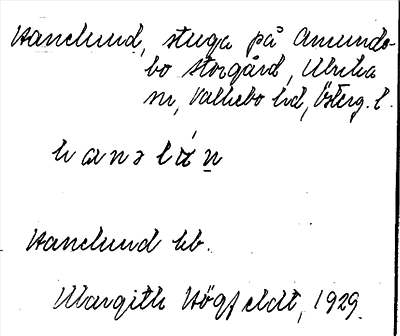 Hanelund, stuga på Amunde-
bo storgård, Ulrika
sn, Valkebo hd, Österg. l.
hanəlún
Hanelund bb.
Margith Högfeldt, 1929.